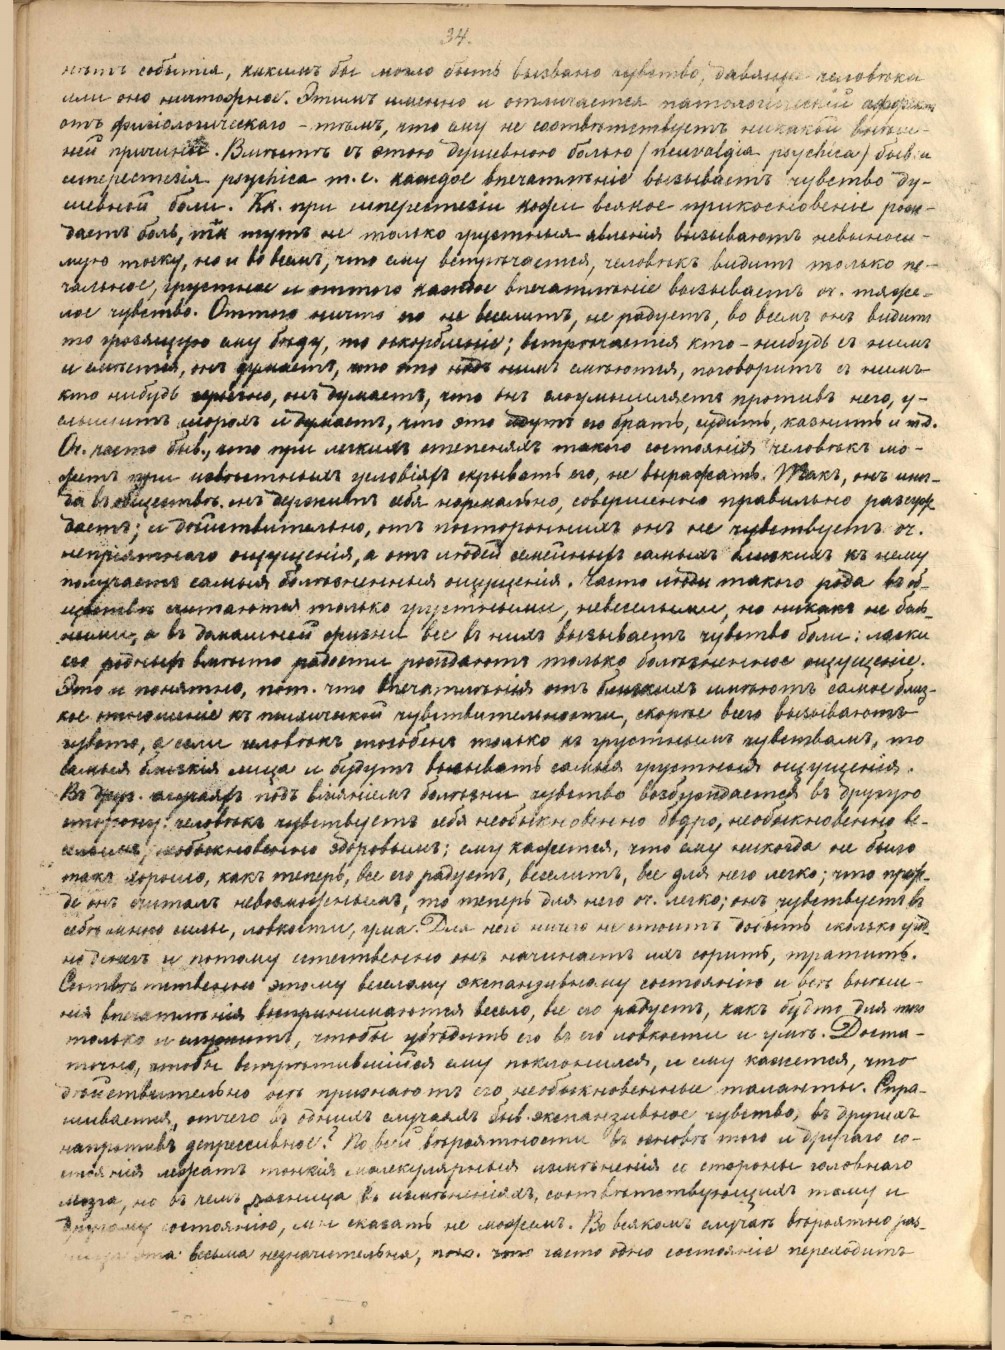 34.
нѣтъ событія, какимъ бы могло быть вызвано чувство, давящее человѣка
или оно ничтожное. Этимъ именно и отличается патологическій аффектъ
отъ физіологическаго – тѣмъ, что ему не соотвѣтствуетъ никакой внѣш-
ней причины. Вмѣстѣ съ этою душевною болью (neuralgia psychica) быв. и
гиперестезія psychica т. е. каждое впечатлѣніе вызываетъ чувство ду-
шевной боли. Кк. при гиперестезіи кожи всякое прикосновеніе рож-
даетъ боль, тк тутъ не только грустныя явленія вызываютъ невыноси-
мую тоску, но и во всемъ, что ему встрѣчается, человѣкъ видитъ только пе-
чальное, грустное и оттого каждое впечатлѣніе вызываетъ оч. тяже-
лое чувство. Оттого ничто его не веселитъ, не радуетъ, во всемъ онъ видитъ
то грозящую ему бѣду, то оскорбленіе; встрѣчается кто-нибудь съ нимъ
и смѣется, онъ думаетъ, что это надъ нимъ смѣются, поговоритъ съ нимъ
кто нибудь онъ думаетъ, что онъ злоумышляетъ противъ него, у-
слышитъ шорохъ и думаетъ, что это идутъ его брать, судить, казнить и тд.
Оч. часто быв., что при легкихъ степеняхъ такого состоянія человѣкъ мо-
жетъ при извѣстныхъ условіяхъ скрывать его, не выражать. Такъ, онъ иног-
да въ обществѣ онъ держитъ себя нормально, совершенно правильно разсуж-
даетъ; и дѣйствительно, отъ постороннихъ онъ не чувствуетъ оч.
непріятнаго ощущенія, а отъ людей семейныхъ самыхъ близкихъ къ нему
получаетъ самыя болѣзненныя ощущенія. Часто люди такого рода въ об-
ществѣ считаются только грустными, невеселыми, но никакъ не боль-
ными, а въ домашней жизни все въ нихъ вызываетъ чувство боли: ласки
его родныхъ вмѣсто радости рождаютъ только болѣзненное ощущеніе.
Это и понятно, пот. что впечатлѣнія отъ близкихъ имѣютъ самое близ-
кое отношеніе къ психической чувствительности, скорѣе всего вызываютъ
чувство, а если человѣкъ способенъ только къ грустнымъ чувствамъ, то
самыя близкія лица и будутъ вызывать самыя грустныя ощущенія.
Въ друг. случаяхъ подъ вліяніемъ болѣзни чувство возбуждается въ другую
сторону: человѣкъ чувствуетъ себя необыкновенно бодро, необыкновенно ве-
селымъ, необыкновенно здоровымъ; ему кажется, что ему никогда не было
такъ хорошо, какъ теперь, все его радуетъ, веселитъ, все для него легко; что преж-
де онъ считалъ невозможнымъ, то теперь для него оч. легко; онъ чувствуетъ въ
себѣ много силы, ловкости, ума. Для него ничего не стоитъ добыть сколько угод-
но денегъ и потому естественно онъ начинаетъ ихъ сорить, тратить.
Соотвѣтственно этому веселому экспанзивному состоянію и всѣ внѣш-
нія впечатлѣнія воспринимаются весело, все его радуетъ, какъ будто для того
только и служитъ, чтобы убѣдить его въ его ловкости и умѣ. Доста-
точно, чтобы встрѣтившійся ему поклонился, и ему кажется, что
дѣйствительно всѣ признаютъ его необыкновенные таланты. Спра-
шивается, отчего въ однихъ случаяхъ быв. экспанзивное чувство, въ другихъ
напротивъ депрессивное? По всей вѣроятности въ основѣ того и другаго со-
стоянія лежатъ тонкія молекулярныя измѣненія со стороны головнаго
мозга, но въ чемъ разница въ измѣненіяхъ, соотвѣтствующихъ тому и
другому состоянію, мы сказать не можемъ. Во всякомъ случаѣ вѣроятно раз-
ница эта весьма незначительна, пот. что часто одно состояніе переходитъ